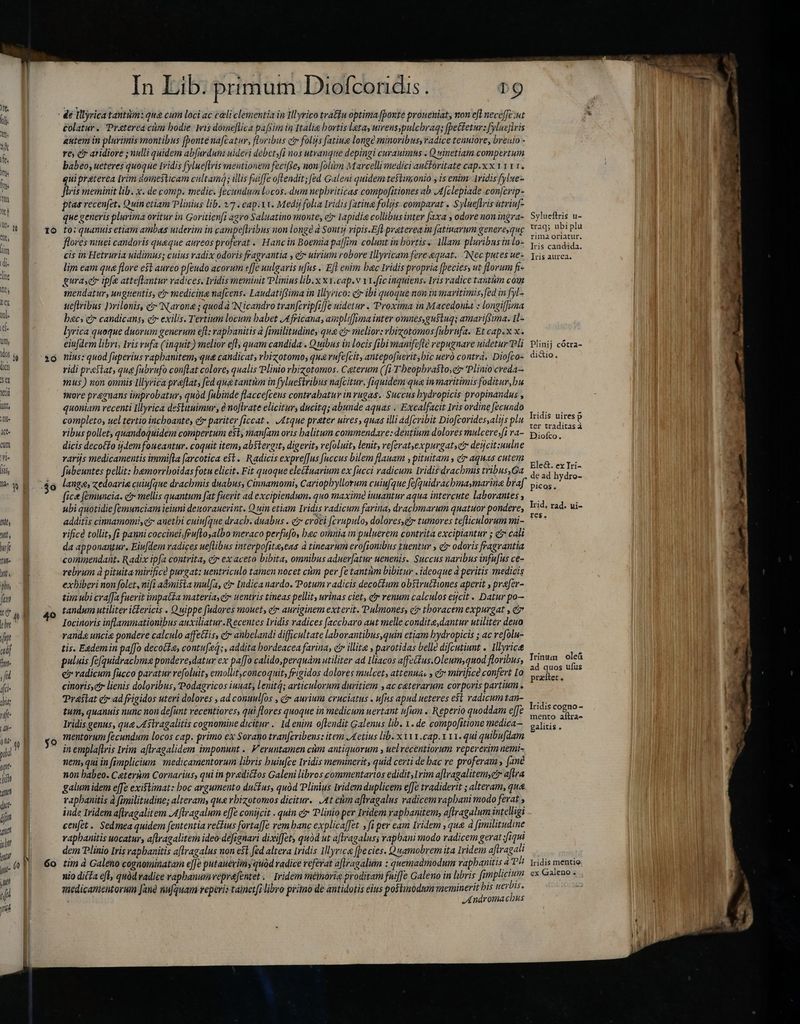 In Lib. primum Dioſcoridis. 19
de Illyrica tantùm: quæ cum loci ac cœli clementia in Illyrico tractu optima ſponte proueniat, non eſt neceſſe ut
colatur. Præterea cùm hodie Iris domeſtica paſsim in Italiæ hortis læta, uirens, pulchraq; ſpectetur: ſylueſtris
autem in plurimis montibus ſponte naſcatur, floribus & folijs ſatiuæ longè minoribus, radice tenuiore, breuio-
re, & aridiore; nulli quidem abſurdum uideri debet, ſi nos utranque depingi curauimus. Quinetiam compertum
habeo, ueteres quoque Iridis ſylueſtris mentionem feciſſe, non ſolùm Marcelli medici auctoritate cap. XXIIII.
qui præterea Irim domeſticam cultamq; illis fuiſſe oſtendit; ſed Galeni quidem teſtimonio, is enim Iridis ſylue-
ſtris meminit lib. x. de comp. medic. ſecundum locos. dum nephriticas compoſitiones ab Aſclepiade conſcrip-
ptas recenſet. Quin etiam Plinius lib. 27. cap. 11. Medij folia Iridis ſatiuæ folijs comparat. Sylueſtris utriuſ-
que generis plurima oritur in Goritienſi agro Saluatino monte, & Iapidiæ collibus inter ſaxa, odore non ingra-
10 to: quanuis etiam ambas uiderim in campeſtribus non longè à Sontij ripis. Eſt præterea in ſatiuarum genere, quæ
flores niuei candoris quæque aureos proferat. Hanc in Boemia paſſim colunt in hortis. Illam pluribus in lo-
cis in Hetruria uidimus; cuius radix odoris fragrantia, & uirium robore Illyricam ferè æquat. Nec putes ue-
lim eam quæ flore eſt aureo pſeudo acorum eſſe uulgaris uſus. Eſt enim hæc Iridis propria ſpecies, ut florum fi-
gura, & ipſæ atteſtantur radices. Iridis meminit Plinius lib. XXI. cap. VII. ſic inquiens. Iris radice tantùm com
mendatur, unguentis, & medicinæ naſcens. Laudatiſſima in Illyrico: & ibi quoque non in maritimis, ſed in ſyl-
ueſtribus Drilonis, & Naronæ; quod à Nicandro tranſcripſiſſe uidetur. Proxima in Macedonia: longiſſima
hæc, & candicans, & exilis. Tertium locum habet Africana, ampliſſima inter omnes, guſtuq; amariſſima. Il-
lyrica quoque duorum generum eſt: raphanitis à ſimilitudine, quæ & melior: rhizotomos ſubrufa. Et cap. XX.
eiuſdem libri, Iris rufa (inquit) melior eſt, quàm candida. Quibus in locis ſibi manifeſtè repugnare uidetur Pli
20 nius: quod ſuperius raphanitem, quæ candicat, rhizotomo, quæ rufeſcit, antepoſuerit, hic uerò contrà. Dioſco-
ridi præſtat, quæ ſubrufo conſtat colore, qualis Plinio rhizotomos. Cæterum (ſi Theophraſto, & Plinio creda-
mus) non omnis Illyrica præſtat, ſed quæ tantùm in ſylueſtribus naſcitur. ſiquidem quæ in maritimis foditur, hu
more prægnans improbatur, quòd ſubinde flacceſcens contrahatur in rugas. Succus hydropicis propinandus,
quoniam recenti Illyrica deſtituimur, è noſtrate elicitur, ducitq; abunde aquas. Excalfacit Iris ordine ſecundo
completo, uel tertio inchoante, & pariter ſiccat. Atque præter uires, quas illi adſcribit Dioſcorides, alijs plu
ribus pollet, quandoquidem compertum eſt, manſam oris halitum commendare: dentium dolores mulcere, ſi ra-
dicis decocto ijdem foueantur. coquit item, abſtergit, digerit, reſoluit, lenit, referat, expurgat, & deijcit: uulnè
varijs medicamentis immiſſa ſarcotica eſt. Radicis expreſſus ſuccus bilem flauam, pituitam, & aquas cutem
ſubeuntes pellit: hæmorrhoidas fotu elicit. Fit quoque electuarium ex ſucci radicum Iridis drachmis tribus, Ga
30 langæ, zedoariæ cuiuſque drachmis duabus, Cinnamomi, Cariophyllorum cuiuſque ſeſquidrachma, marinæ braſ
ſicæ ſemuncia. & mellis quantum ſat fuerit ad excipiendum. quo maximè iuuantur aqua intercute laborantes,
ubi quotidie ſemunciam ieiuni deuorauerint. Quin etiam Iridis radicum farina, drachmarum quatuor pondere,
additis cinnamomi, & anethi cuiuſque drach. duabus. & croci ſcrupulo, dolores, & tumores teſticulorum mi-
rificè tollit, ſi panni coccinei fruſto, albo meraco perfuſo, hæc omnia in puluerem contrita excipiantur; & cali
da apponantur. Eiuſdem radices ueſtibus interpoſitæ, eas à tinearum eroſionibus tuentur, & odoris fragrantia
commendant. Radix ipſa contrita, & ex aceto bibita, omnibus aduerſatur uenenis. Succus naribus infuſus ce-
rebrum à pituita mirificè purgat: uentriculo tamen nocet cùm per ſe tantùm bibitur. ideoque à peritis medicis
exhiberi non ſolet, niſi admiſta mulſa, & Indica nardo. Potum radicis decoctum obſtructiones aperit, præſer-
tim ubi craſſa fuerit impacta materia, & uentris tineas pellit, urinas ciet, & renum calculos eijcit. Datur po-
40 tandum utiliter ictericis. Quippe ſudores mouet, & auriginem exterit. Pulmones, & thoracem expurgat, &
Iocinoris inflammationibus auxiliatur. Recentes Iridis radices ſaccharo aut melle conditæ, dantur utiliter deuo
randæ unciæ pondere calculo affectis, & anhelandi difficultate laborantibus, quin etiam hydropicis; ac reſolu-
tis. Eædem in paſſo decoctæ, contuſæq;, addita hordeacea farina, & illitæ, parotidas bellè diſcutiunt. Illyricæ
puluis ſeſquidrachmæ pondere, datur ex paſſo calido, perquàm utiliter ad Iliacos affectus. Oleum, quod floribus,
& radicum ſucco paratur reſoluit, emollit, concoquit, frigidos dolores mulcet, attenuat, & mirificè confert Io
cinoris, & lienis doloribus, Podagricos iuuat, lenitq; articulorum duritiem, ac cæterarum corporis partium.
Præſtat & ad frigidos uteri dolores, ad conuulſos, & aurium cruciatus. uſus apud ueteres eſt radicum tan-
tum, quanuis nunc non deſunt recentiores, qui flores quoque in medicum uertant uſum. Reperio quoddam eſſe
Iridis genus, quæ Aſtragalitis cognomine dicitur. Id enim oſtendit Galenus lib. 1. de compoſitione medica-
50 mentorum ſecundum locos cap. primo ex Sorano tranſcribens: item Aetius lib. XIII. cap. III. qui quibuſdam
in emplaſtris Irim aſtragalidem imponunt. Veruntamen cùm antiquorum, uel recentiorum repererim nemi-
nem, qui in ſimplicium medicamentorum libris huiuſce Iridis meminerit, quid certi de hac re proferam, ſanè
non habeo. Cæterùm Cornarius, qui in prædictos Galeni libros commentarios edidit, Irim aſtragalitem, & aſtra
galum idem eſſe exiſtimat: hoc argumento ductus, quòd Plinius Iridem duplicem eſſe tradiderit; alteram, quæ
raphanitis à ſimilitudine; alteram, quæ rhizotomos dicitur. At cùm aſtragalus radicem raphani modo ferat,
inde Iridem aſtragalitem Aſtragalum eſſe conijcit. quin & Plinio per Iridem raphanitem, aſtragalum intelligi
cenſet. Sed mea quidem ſententia rectius fortaſſe rem hanc explicaſſet, ſi per eam Iridem, quæ à ſimilitudine
raphanitis uocatur, aſtragalitem ideo deſignari dixiſſet, quòd ut aſtragalus, raphani modo radicem gerat. ſiqui
dem Plinio Iris raphanitis aſtragalus non eſt, ſed altera Iridis Illyricæ ſpecies. Quamobrem ita Iridem aſtragali
60 tim à Galeno cognominatam eſſe putauerim, quòd radice referat aſtragalum: quemadmodum raphanitis à Pli
nio dicta eſt, quòd radice raphanum repræſentet. Iridem memoriæ proditam fuiſſe Galeno in libris ſimplicium
medicamentorum ſanè nuſquam reperi: tametſi libro primo de antidotis eius poſtmodum meminerit his uerbis.
Andromachus
Sylueſtris u-
traq; ubi plu
rima oriatur.
Iris candida.
Iris aurea.
Plinij cõtra-
dictio.
Iridis uires p̄
ter traditas à
Dioſco.
Elect. ex Iri-
de ad hydro-
picos.
Irid. rad. ui-
res.
Irinum oleũ
ad quos uſus
præſtet.
Iridis cogno-
mento aſtra-
galitis.
Iridis mentio
ex Galeno.